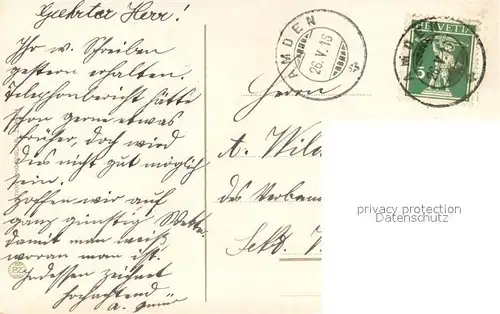 Geehrter Herr!
Ihr w. Schreiben
gestern erhalten.
Telephonbericht hätte
schon gerne etwas
früher, doch wird
dies nicht gut möglich
sein.
Hoffen wir auf
ganz günstig Wetter
damit man weiß
woran man ist.
Indessen zeichnet
hochachtend
A.
AMDEN
26.V.16
HELVETIA
5
Herrn
A. Wild
des Verban
Sekr.
privacy protection
Datenschutz